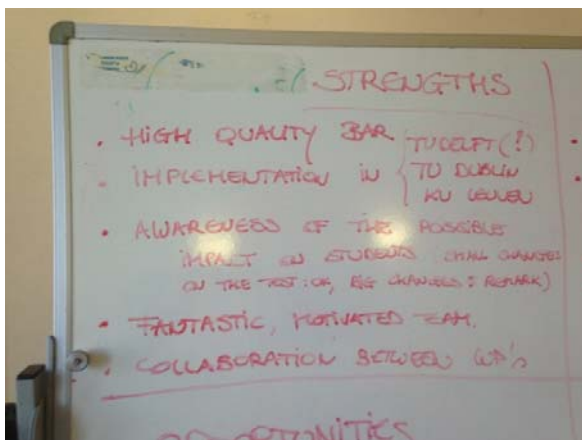 STRENGTHS
• HIGH QUALITY BAR
• IMPLEMENTATION IN { TU DELFT (!)
TU DUBLIN
KU LEUVEN
• AWARENESS OF THE POSSIBLE
IMPACT ON STUDENTS (SMALL CHANGES
ON THE TEST: OK, BIG CHANGES: REMARK)
• FANTASTIC, MOTIVATED TEAM.
• COLLABORATION BETWEEN WP's
OPPORTUNITIES